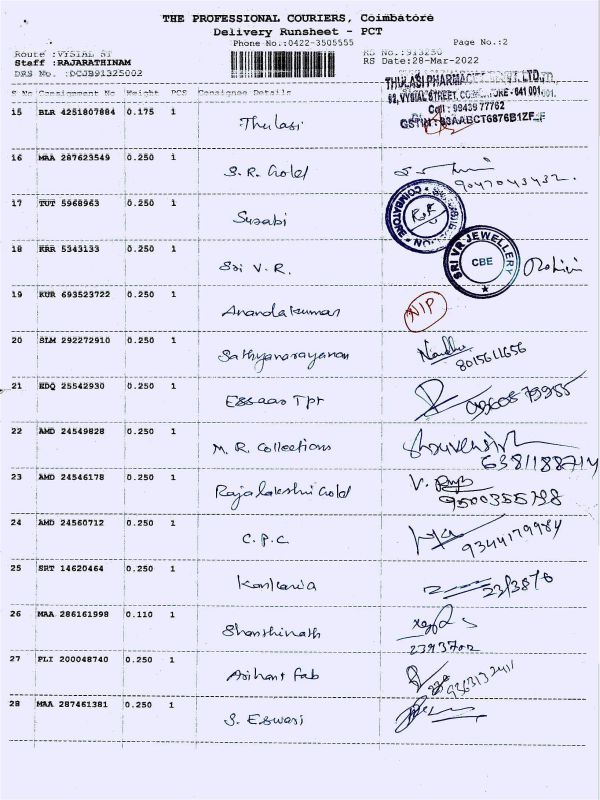 THE PROFESSIONAL COURIERS, Coimbatore
Delivery Runsheet - PCT
Phone No.:0422-3505555 Page No.:2
Route :VYSIAL ST RS No.:913250
Staff :RAJARATHINAM RS Date:28-Mar-2022
DRS No. :DCJB91325002
THULASI PHARMACIES
62, VYSIAL STREET, 641 001.
Cell : 99439 77762
S No Consignment No Weight PCS Consignee Details
15 BLR 4251807884 0.175 1 Thulasi
16 MAA 287623549 0.250 1 S. R. Gold 9047043432.
17 TUT 5968963 0.250 1 Susabi
COIMBATORE
18 KRR 5343133 0.250 1 Sri V. R.
SRI VR JEWELLERY CBE Rohini
19 KUR 693523722 0.250 1 Anandakumar NIP
20 SLM 292272910 0.250 1 Sathyanarayanan
8015611656
21 EDQ 25542930 0.250 1 Essaar Tpt
22 AMD 24549828 0.250 1 M. R. Collections
6381188714
23 AMD 24546178 0.250 1 Rajalakshmi Gold V.
9500355798
24 AMD 24560712 0.250 1 C. P. C 9344179984
25 SRT 14620464 0.250 1 Kankaria
26 MAA 286161998 0.110 1 Shanthinath
2393702
27 PLI 200048740 0.250 1 Arihant Fab
28 MAA 287461381 0.250 1 S. Eswari